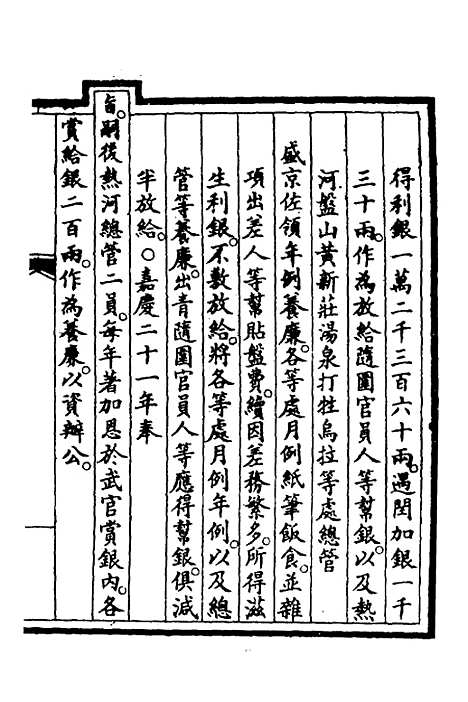 得利銀一萬二千三百六十兩。遇閏加銀一千
三十兩。作為放給隨圍官員人等幫銀。以及熱
河盤山黃新莊湯泉打牲烏拉等處總管
盛京佐領年例養廉。各等處月例紙筆飯食。並雜
項出差人等幫貼盤費。續因差務繁多。所得滋
生利銀。不敷放給。將各等處月例年例。以及總
管等養廉。出青隨圍官員人等應得幫銀。俱減
半放給。○嘉慶二十一年奉
旨。嗣後熱河總管二員。每年著加恩於武官賞銀內。各
賞給銀二百兩。作為養廉。以資辦公。